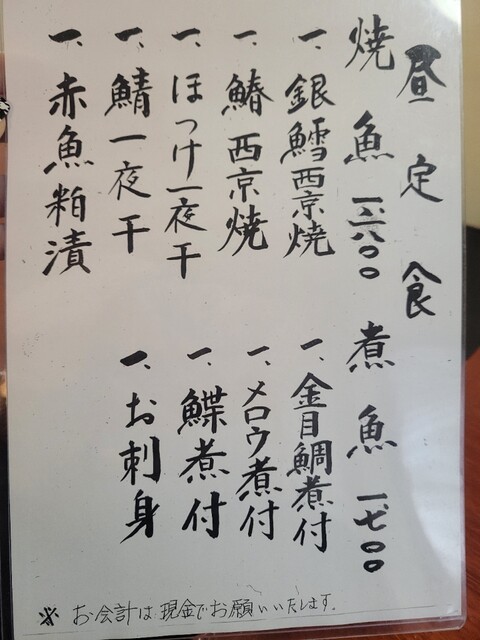 昼定食
焼魚 一、六〇〇
一、銀鱈西京焼
一、鰆西京焼
一、ほっけ一夜干
一、鯖一夜干
一、赤魚粕漬
煮魚 一、七〇〇
一、金目鯛煮付
一、メロウ煮付
一、鰈煮付
一、お刺身
※ お会計は現金でお願いいたします.